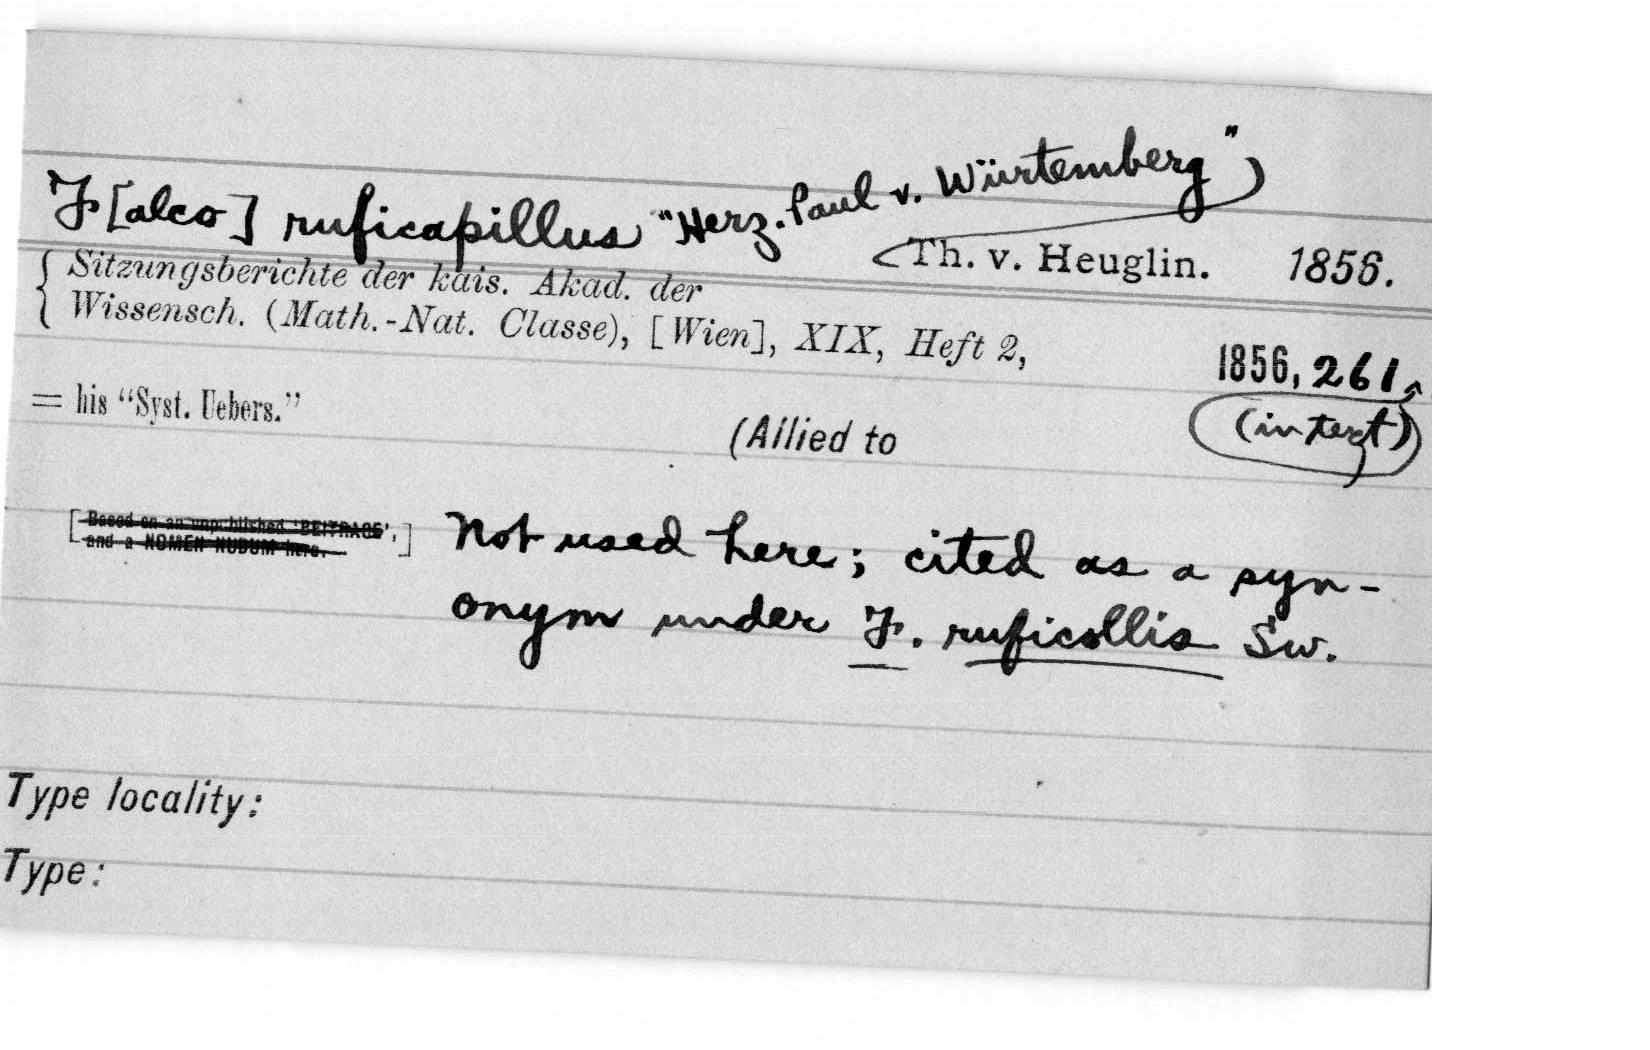 F[alco] ruficapillus "Herz. Paul v. Würtemberg"
Th. v. Heuglin. 1856.
Sitzungsberichte der kais. Akad. der
Wissensch. (Math.-Nat. Classe), [Wien], XIX, Heft 2,
1856, 261
(in text)
= his "Syst. Uebers."
(Allied to
[Based on an unpublished 'BEITRAGE',
and a NOMEN NUDUM here.]
Not used here; cited as a syn-
onym under F. ruficollis Sw.
Type locality:
Type: